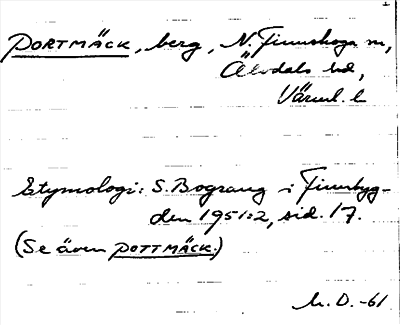 PORTMÄCK, berg, N. Finnskoga sn,
Älvdals hd,
Värml. l.
Etymologi: S. Bograng i Finnbyg-
den 1951:2, sid. 17.
(Se även POTTMÄCK.)
M. D. -61